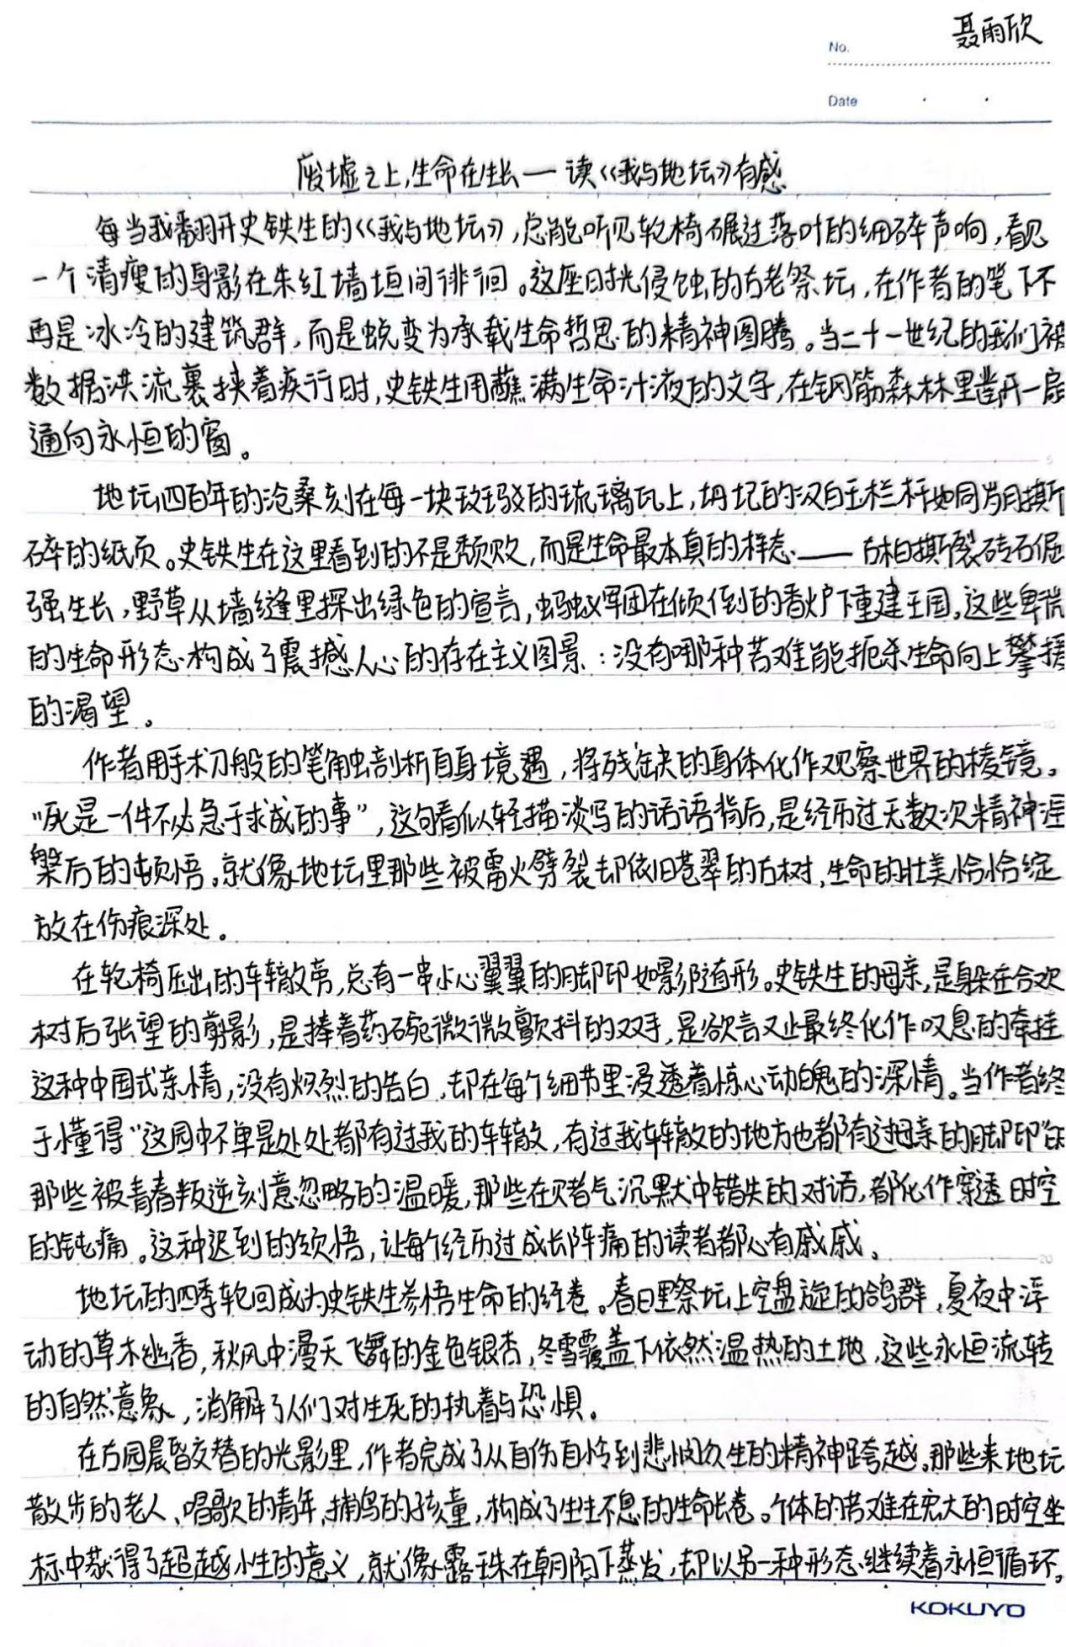 No.
聂雨欣
Date
废墟之上,生命在生长——读《我与地坛》有感
每当我翻开史铁生的《我与地坛》,总能听见轮椅碾过落叶的细碎声响,看见
一个清瘦的身影在朱红墙垣间徘徊。这座时光侵蚀的古老祭坛,在作者的笔下不
再是冰冷的建筑群,而是蜕变为承载生命哲思的精神图腾。当二十一世纪的我们被
数据洪流裹挟着疾行时,史铁生用蘸满生命汁液的文字,在钢筋森林里凿开一扇
通向永恒的窗。
地坛四百年的沧桑刻在每一块斑驳的琉璃瓦上,坍圮的汉白玉栏杆如同岁月撕
碎的纸页。史铁生在这里看到的不是颓败,而是生命最本真的样态——古柏撕裂砖石倔
强生长,野草从墙缝里探出绿色的宣言,蚂蚁军团在倾倒的香炉下重建王国。这些卑微
的生命形态构成了震撼人心的存在主义图景:没有哪种苦难能扼杀生命向上攀援
的渴望。
作者用手术刀般的笔触剖析自身境遇,将残缺的身体化作观察世界的棱镜。
“死是一件不必急于求成的事”,这句看似轻描淡写的话语背后,是经历过无数次精神涅
槃后的顿悟。就像地坛里那些被雷火劈裂却依旧苍翠的古树,生命的壮美恰恰绽
放在伤痕深处。
在轮椅压出的车辙旁,总有一串小心翼翼的脚印如影随形。史铁生的母亲,是躲在合欢
树后张望的剪影,是捧着药碗微微颤抖的双手,是欲言又止最终化作叹息的牵挂
这种中国式亲情,没有炽烈的告白,却在每个细节里浸透着惊心动魄的深情。当作者终
于懂得“这园中不单是处处都有过我的车辙,有过我车辙的地方也都有过母亲的脚印”时
那些被青春叛逆刻意忽略的温暖,那些在赌气沉默中错失的对话,都化作穿透时空
的钝痛。这种迟到的领悟,让每个经历过成长阵痛的读者都心有戚戚。
地坛的四季轮回成为史铁生参悟生命的经卷。春日里祭坛上空盘旋的鸽群,夏夜中浮
动的草木幽香,秋风中漫天飞舞的金色银杏,冬雪覆盖下依然温热的土地,这些永恒流转
的自然意象,消解了人们对生死的执着与恐惧。
在古园晨昏交替的光影里,作者完成了从自伤自怜到悲悯众生的精神跨越。那些来地坛
散步的老人、唱歌的青年,捕鸟的孩童,构成了生生不息的生命长卷。个体的苦难在宏大的时空坐
标中获得了超越小性的意义,就像露珠在朝阳下蒸发,却以另一种形态继续着永恒循环。
KOKUYO